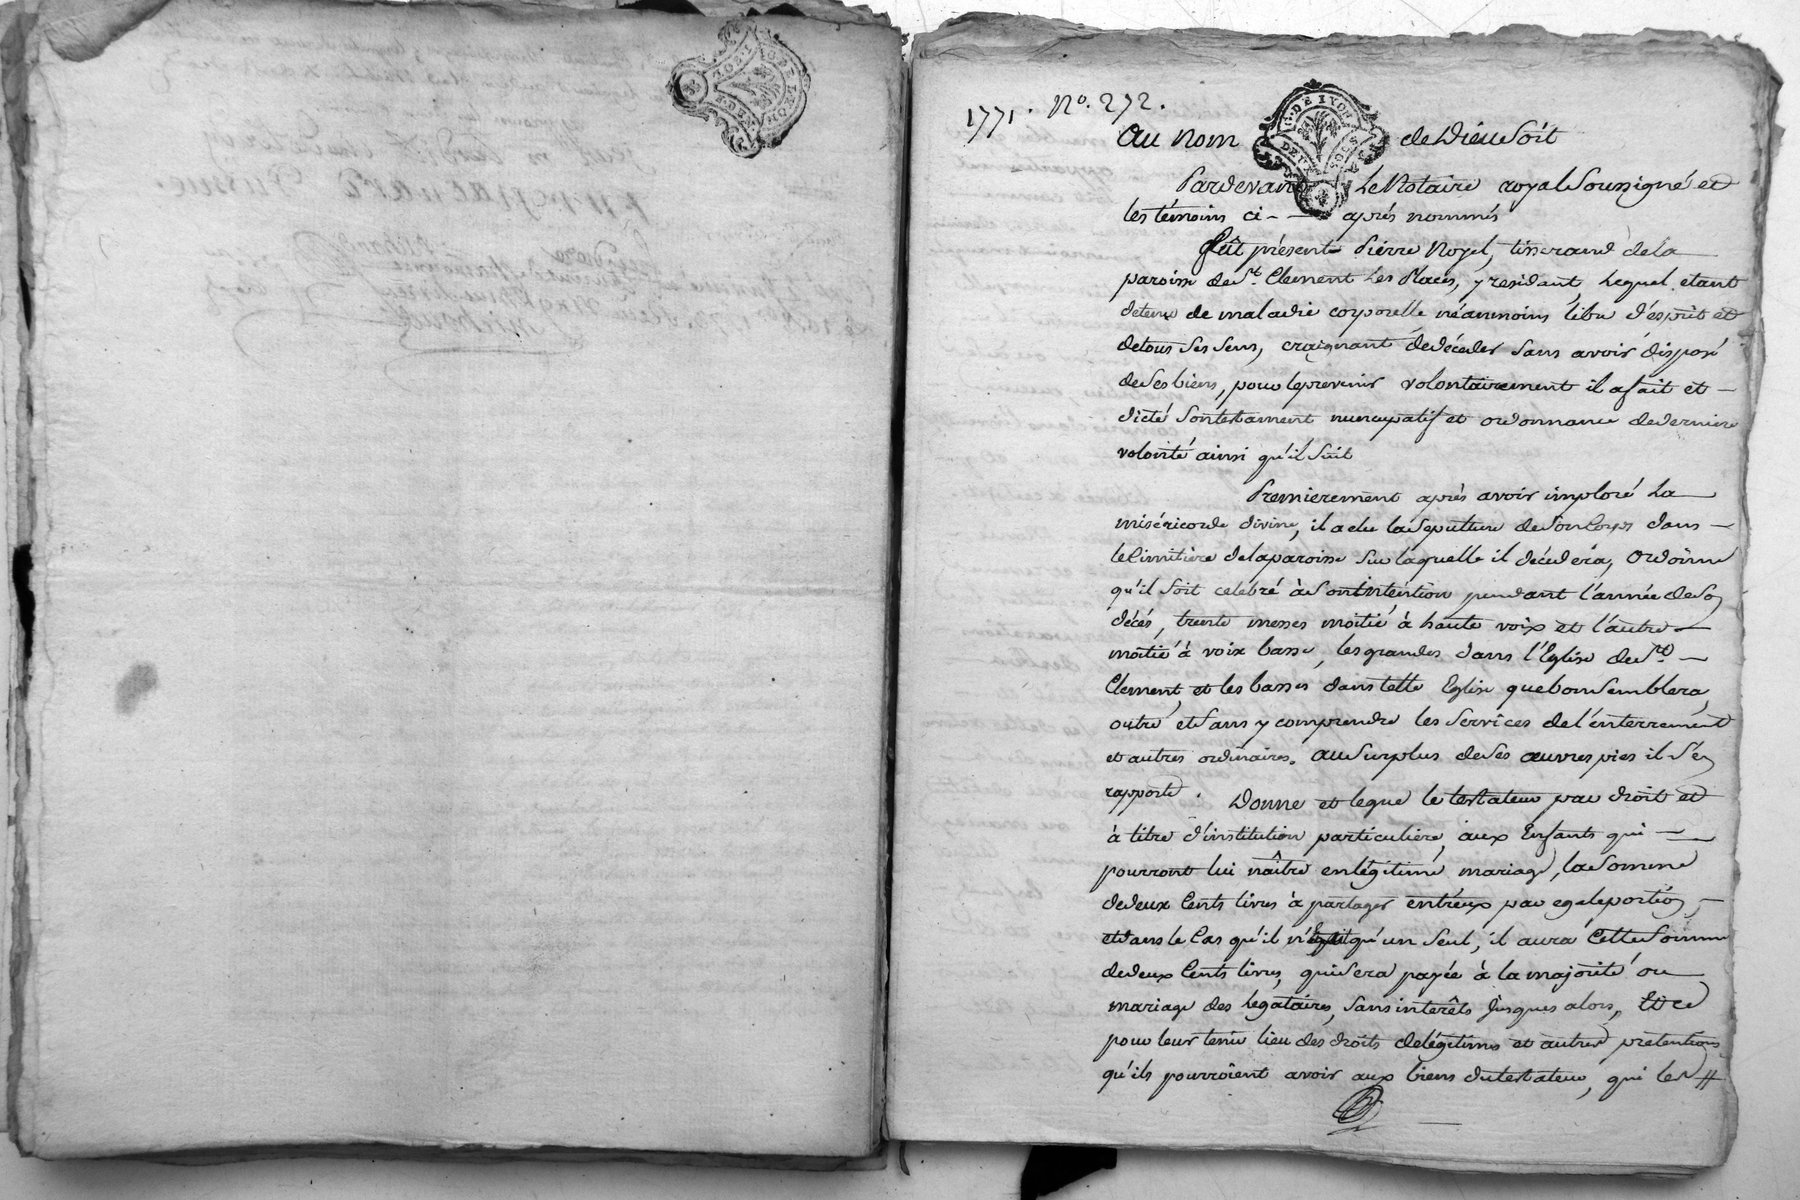 1771. N.º 272.
G. DE LYON
DEUX SOLS
au nom de Dieu Soit
Pardevant Le Notaire royal Soussigné et
les témoins ci- après nommés
fût présent Pierre Noyel, tisserand de la
paroisse de St. Clement Les Places, y residant, Lequel étant
detenu de maladie corporelle néanmoins libre d'ésprit et
de tous Ses Sens, craignant de décéder Sans avoir disposé
de Ses biens, pour le prevenir volontairement il a fait et
dicté Son testament nuncupatif et ordonnance de derniere
volonté ainsi qu'il Suit
Premierement après avoir imploré La
miséricorde divine, il a elu la Sepulture de Son Corps dans
le Cimitière de la paroisse Sur laquelle il décédera, Ordonne
qu'il Soit célébré à Son intention pendant l'année de Son
décés, trente messes moitié à haute voix et l'autre
moitié à voix basse, les grandes dans l'Eglise de St.
Clement, et les basses dans telle Eglise que bon Semblera,
outre et Sans y comprendre les Services de l'énterrement
et autres ordinaires. au Surplus de Ses œuvres pies il S'en
rapporte. Donne et legue le testateur par droit et
à titre d'institution particuliere, aux Enfants qui
pourront lui naître en légitime mariage, la Somme
de deux Cents livres à partager entr'eux par egale portion,
et dans le Cas qu'il n'y eut qu'un Seul, il aura Cette Somme
de deux Cents livres, qui Sera payée à la majorité ou
mariage des Legataires, Sans intérêts Jusques alors, Et ce
pour leur tenir lieu des droits de légitime et autres prétentions
qu'ils pourroient avoir aux biens du testateur, qui les #